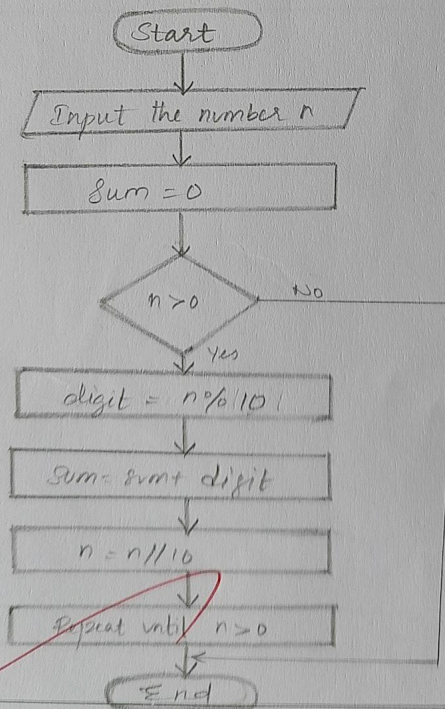 Start
Input the number n
Sum = 0
n > 0
No
Yes
digit = n % 10
Sum = sum + digit
n = n // 10
Repeat until n > 0
End